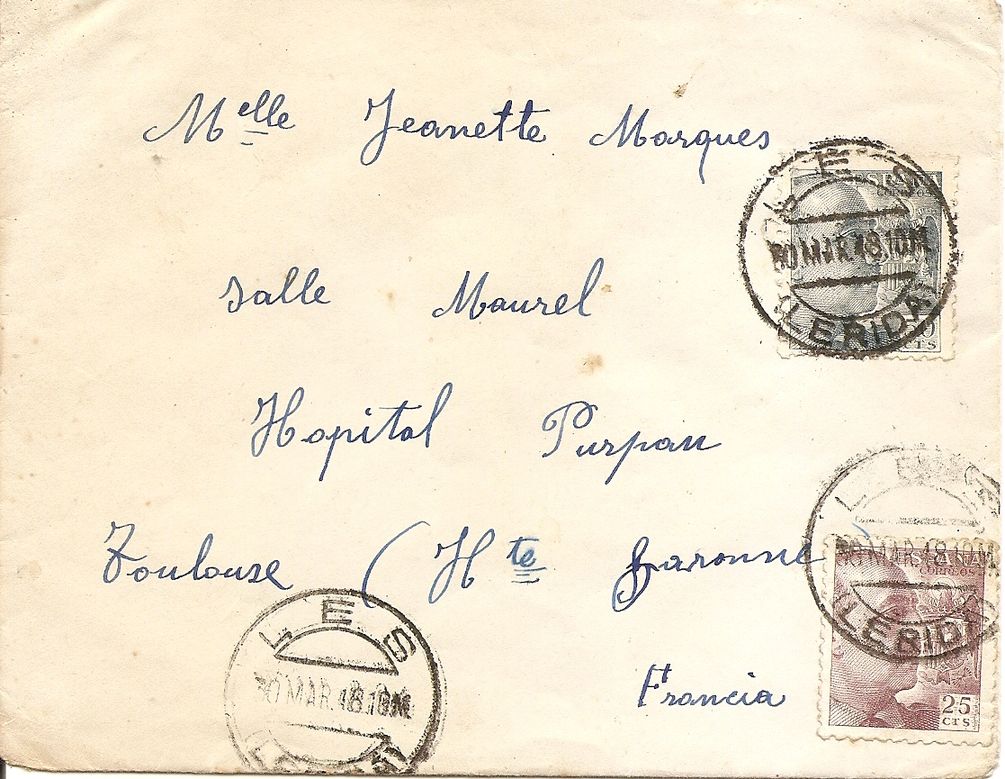 Melle Jeanette Marques
salle Maurel
Hopital Purpan
Toulouse (Hte Garonne)
Francia
LES
30 MAR.48.10M
(LERIDA)
CTS
LES
30 MAR.48.10M
(LERIDA)
25
CTS
LES
30 MAR.48.10M